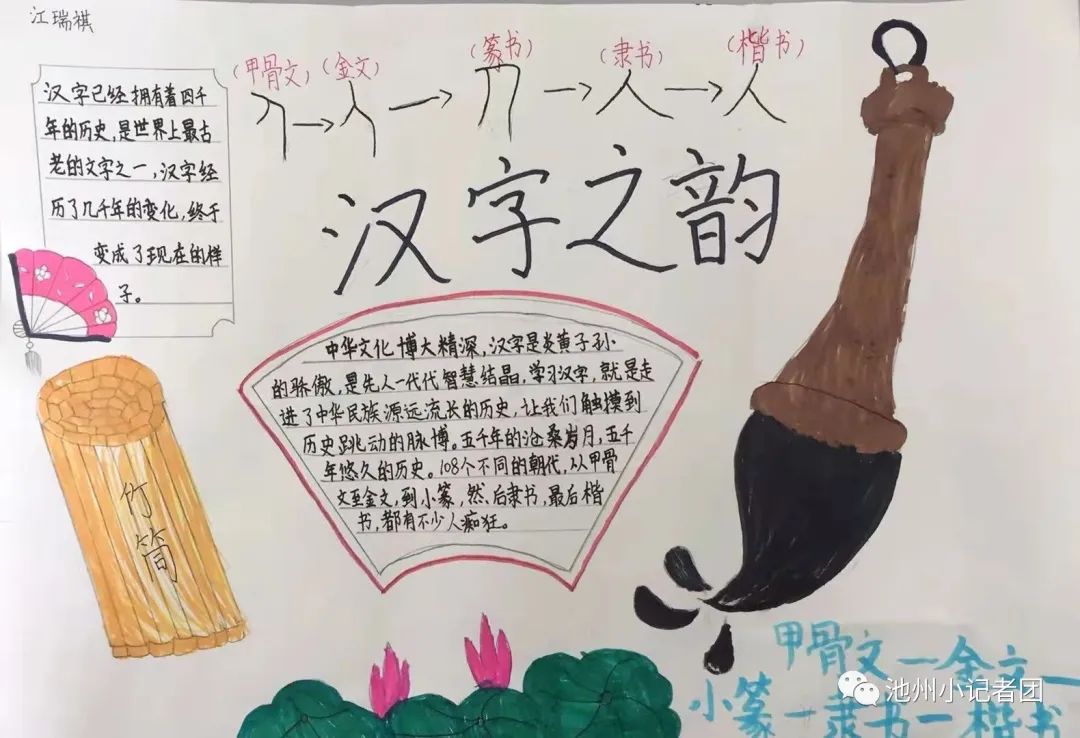 江瑞祺
(甲骨文)(金文) (篆书) (隶书) (楷书)
汉字之韵
汉字已经拥有着四千
年的历史,是世界上最古
老的文字之一,汉字经
历了几千年的变化,终于
变成了现在的样
子。
中华文化博大精深,汉字是炎黄子孙
的骄傲,是先人一代代智慧结晶,学习汉字,就是走
进了中华民族源远流长的历史,让我们触摸到
历史跳动的脉博。五千年的沧桑岁月,五千
年悠久的历史。108个不同的朝代,从甲骨
文至金文,到小篆,然后隶书,最后楷
书,都有不少人痴狂。
竹简
甲骨文—金文—
小篆—隶书—楷书
池州小记者团